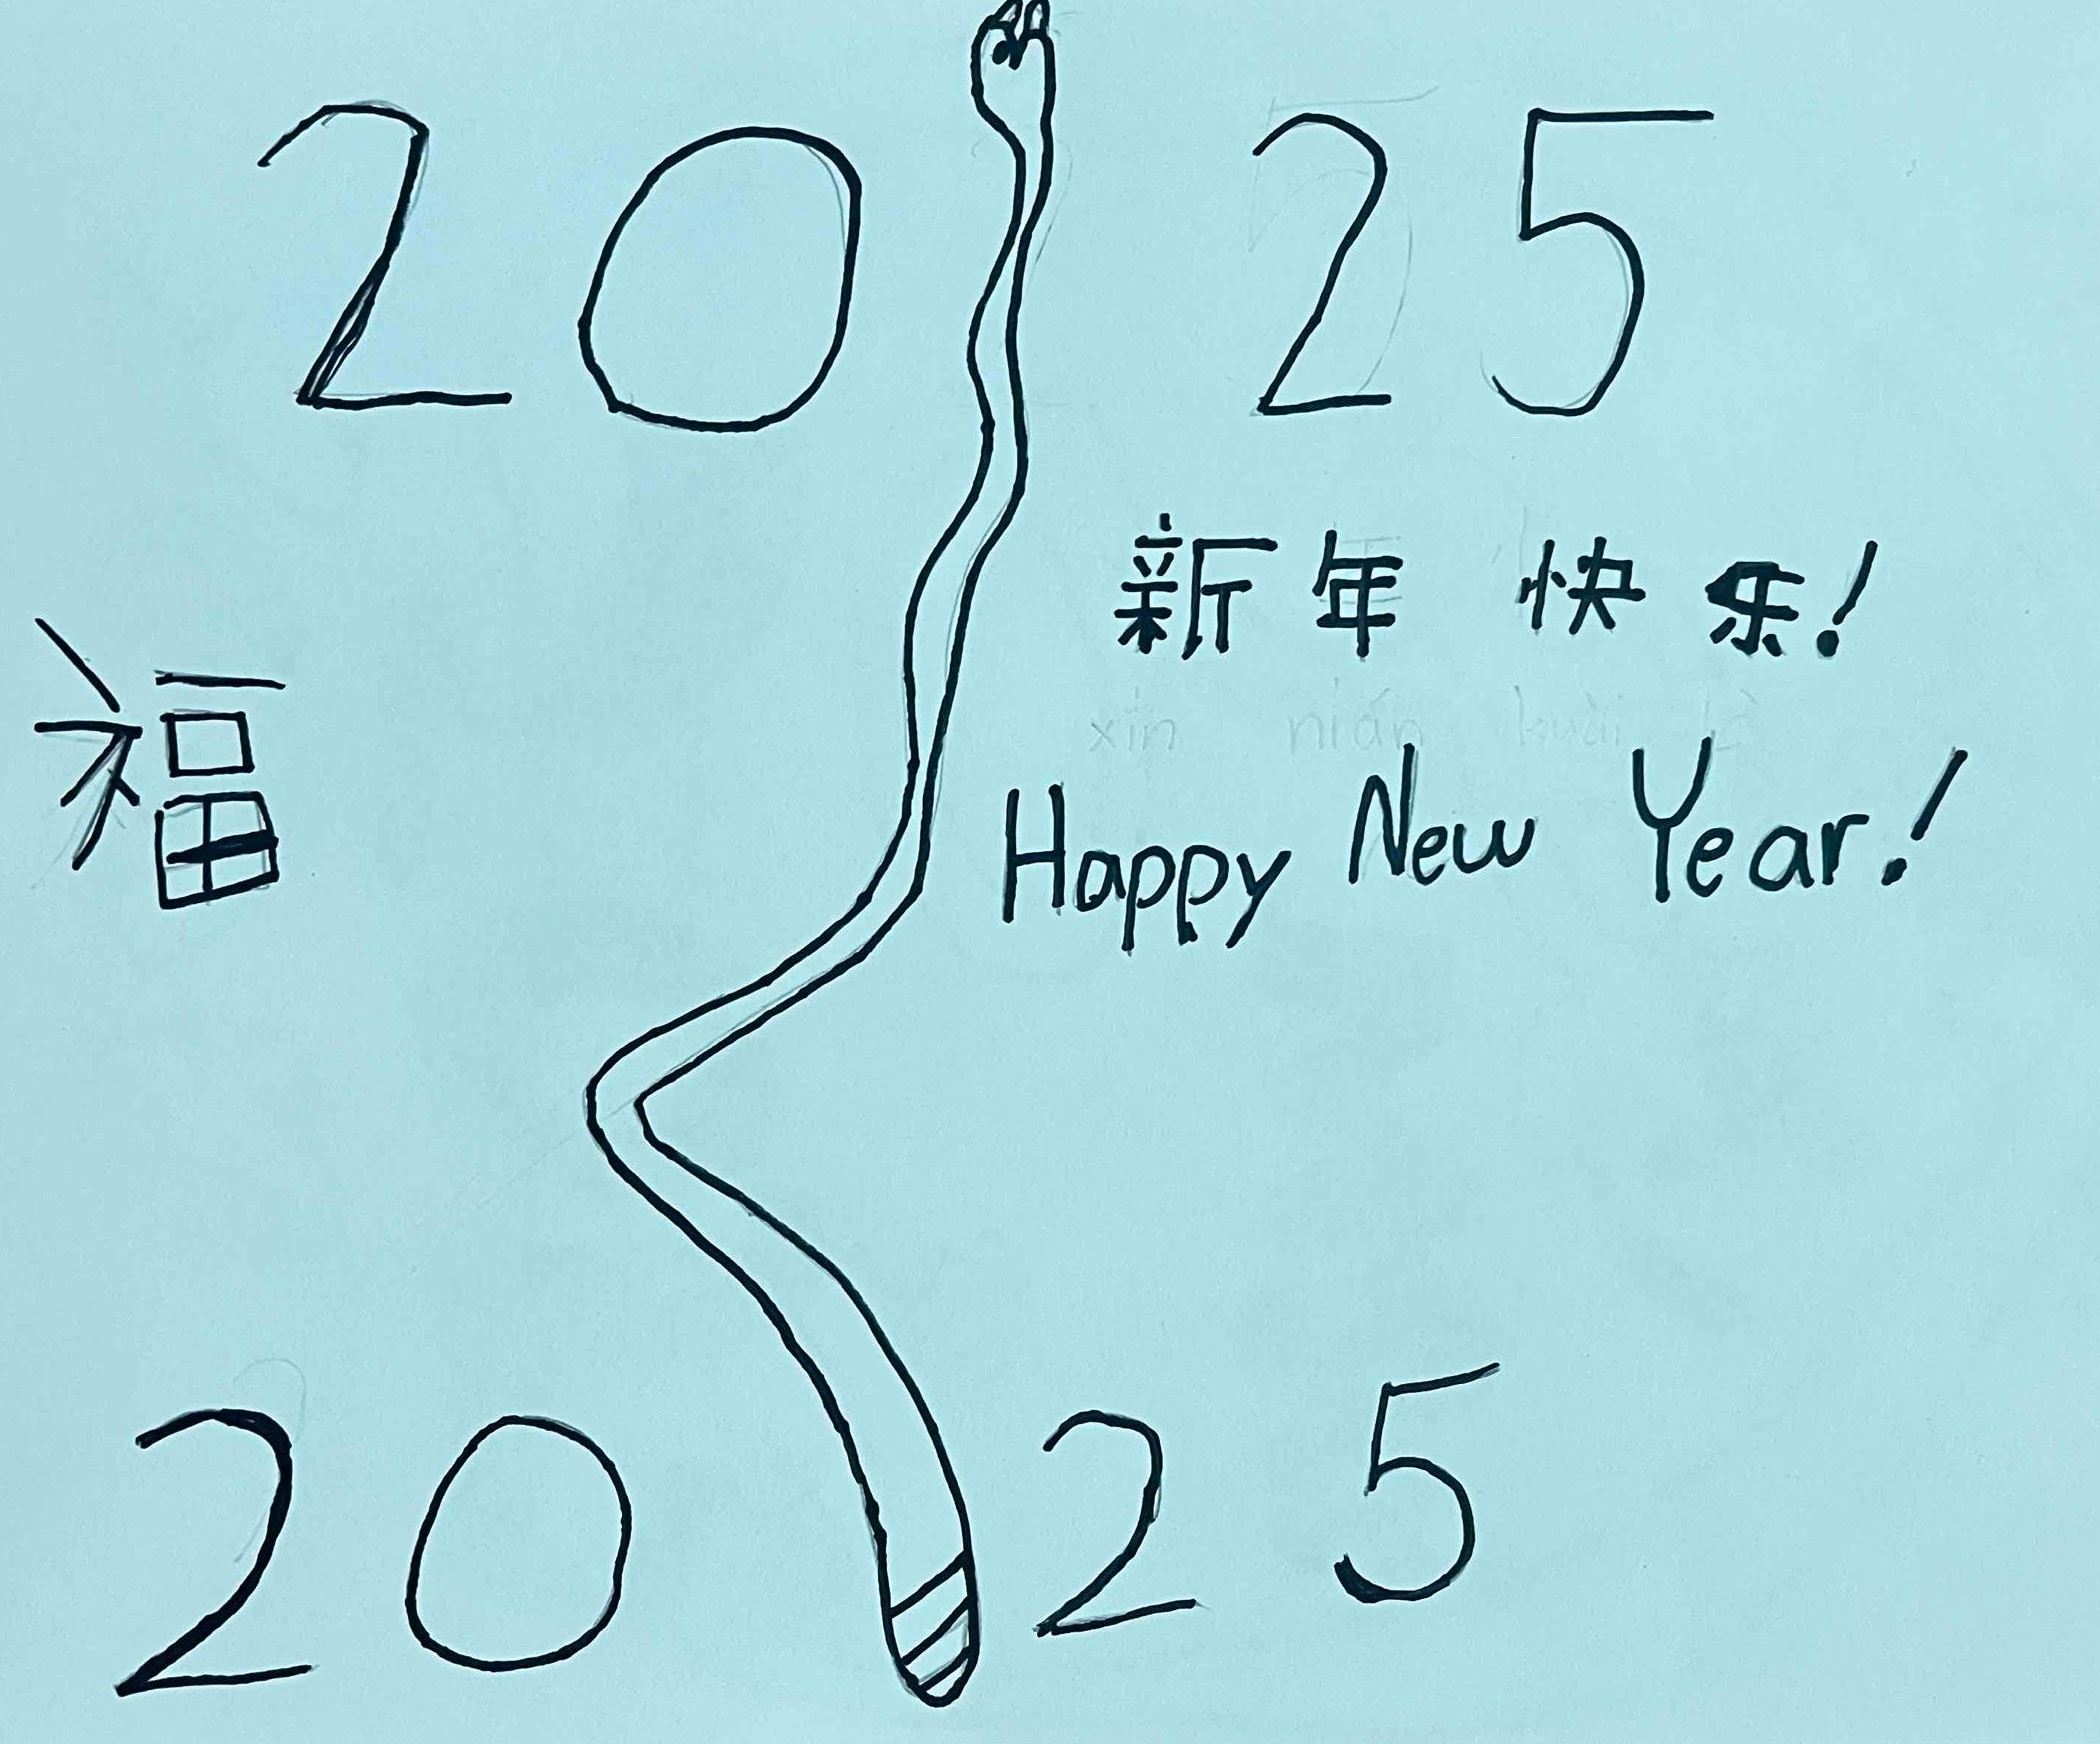 20 25
新年快乐!
福
xīn nián kuài lè
Happy New Year!
20 25